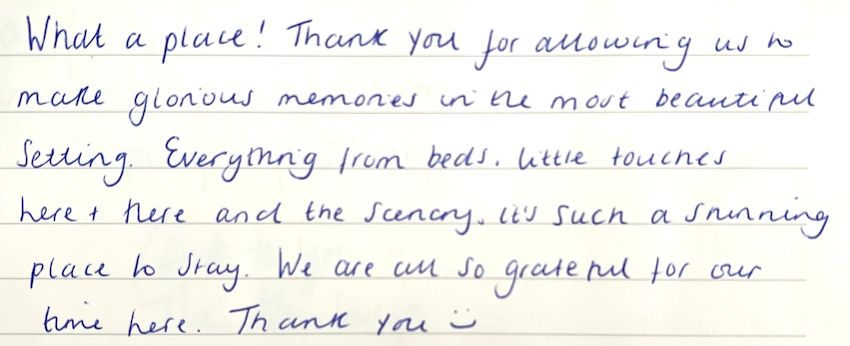 What a place! Thank you for allowing us to
make glorious memories in the most beautiful
setting. Everything from beds, little touches
here + there and the scenery, it's such a stunning
place to stay. We are all so grateful for our
time here. Thank you :)